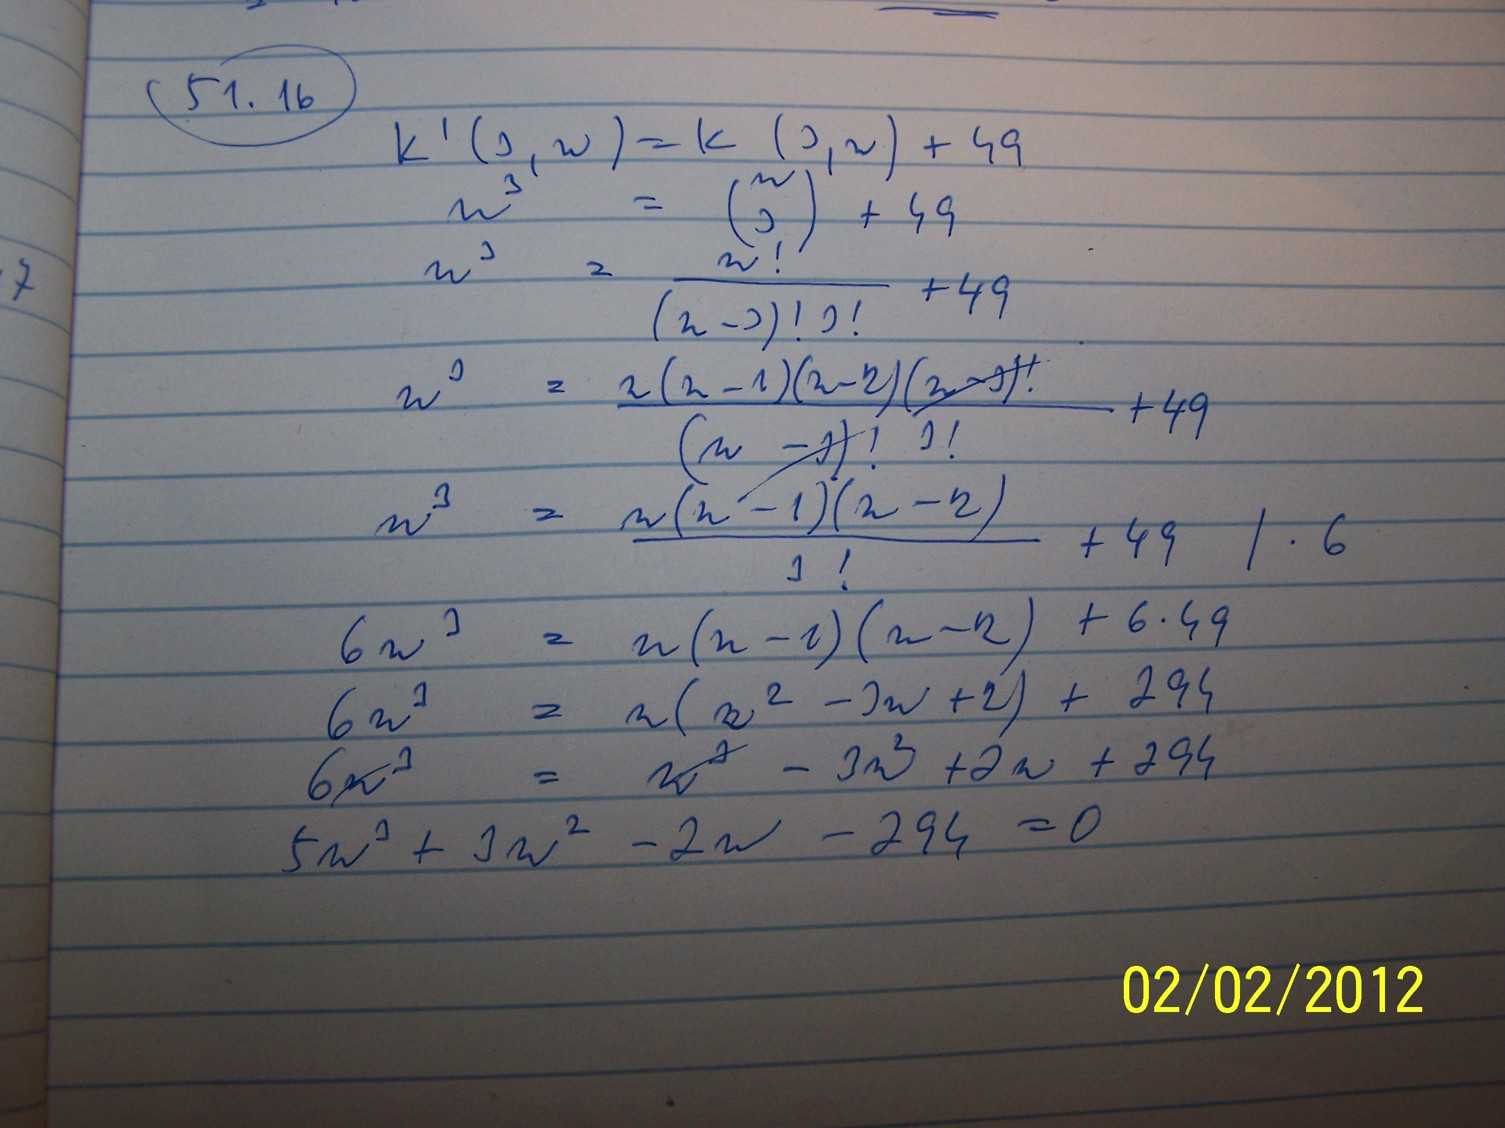 51.16
K'(3,n) = K (3,n) + 49
n³ = (n 3) + 49
n³ = n! / (n-3)! 3! + 49
n³ = n(n-1)(n-2)(n-3)! / (n-3)! 3! + 49
n³ = n(n-1)(n-2) / 3! + 49 / · 6
6n³ = n(n-1)(n-2) + 6·49
6n³ = n(n² - 3n + 2) + 294
6n³ = n³ - 3n² + 2n + 294
5n³ + 3n² - 2n - 294 = 0
7
02/02/2012